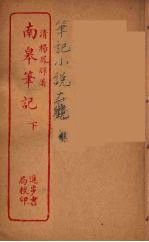 清楊鳳辉著
南皋筆記
下
進步書
局校印
筆記小說大觀